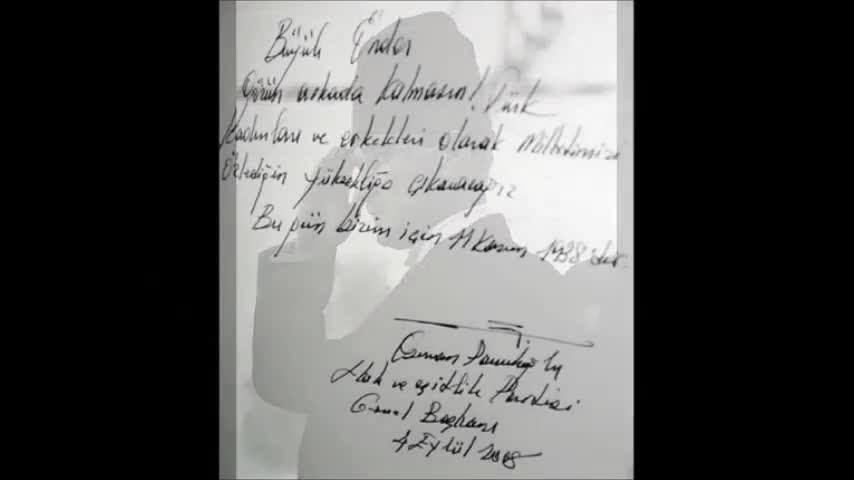 Büyük Önder
Gözün arkada kalmasın! Türk
kadınları ve erkekleri olarak Milletimizi
Özlediğin yüksekliğe çıkaracağız
Bugün bizim için 11 Kasım 1938 dir.
Osman Pamukoğlu
Hak ve eşitlik Partisi
Genel Başkanı
4 Eylül 2008